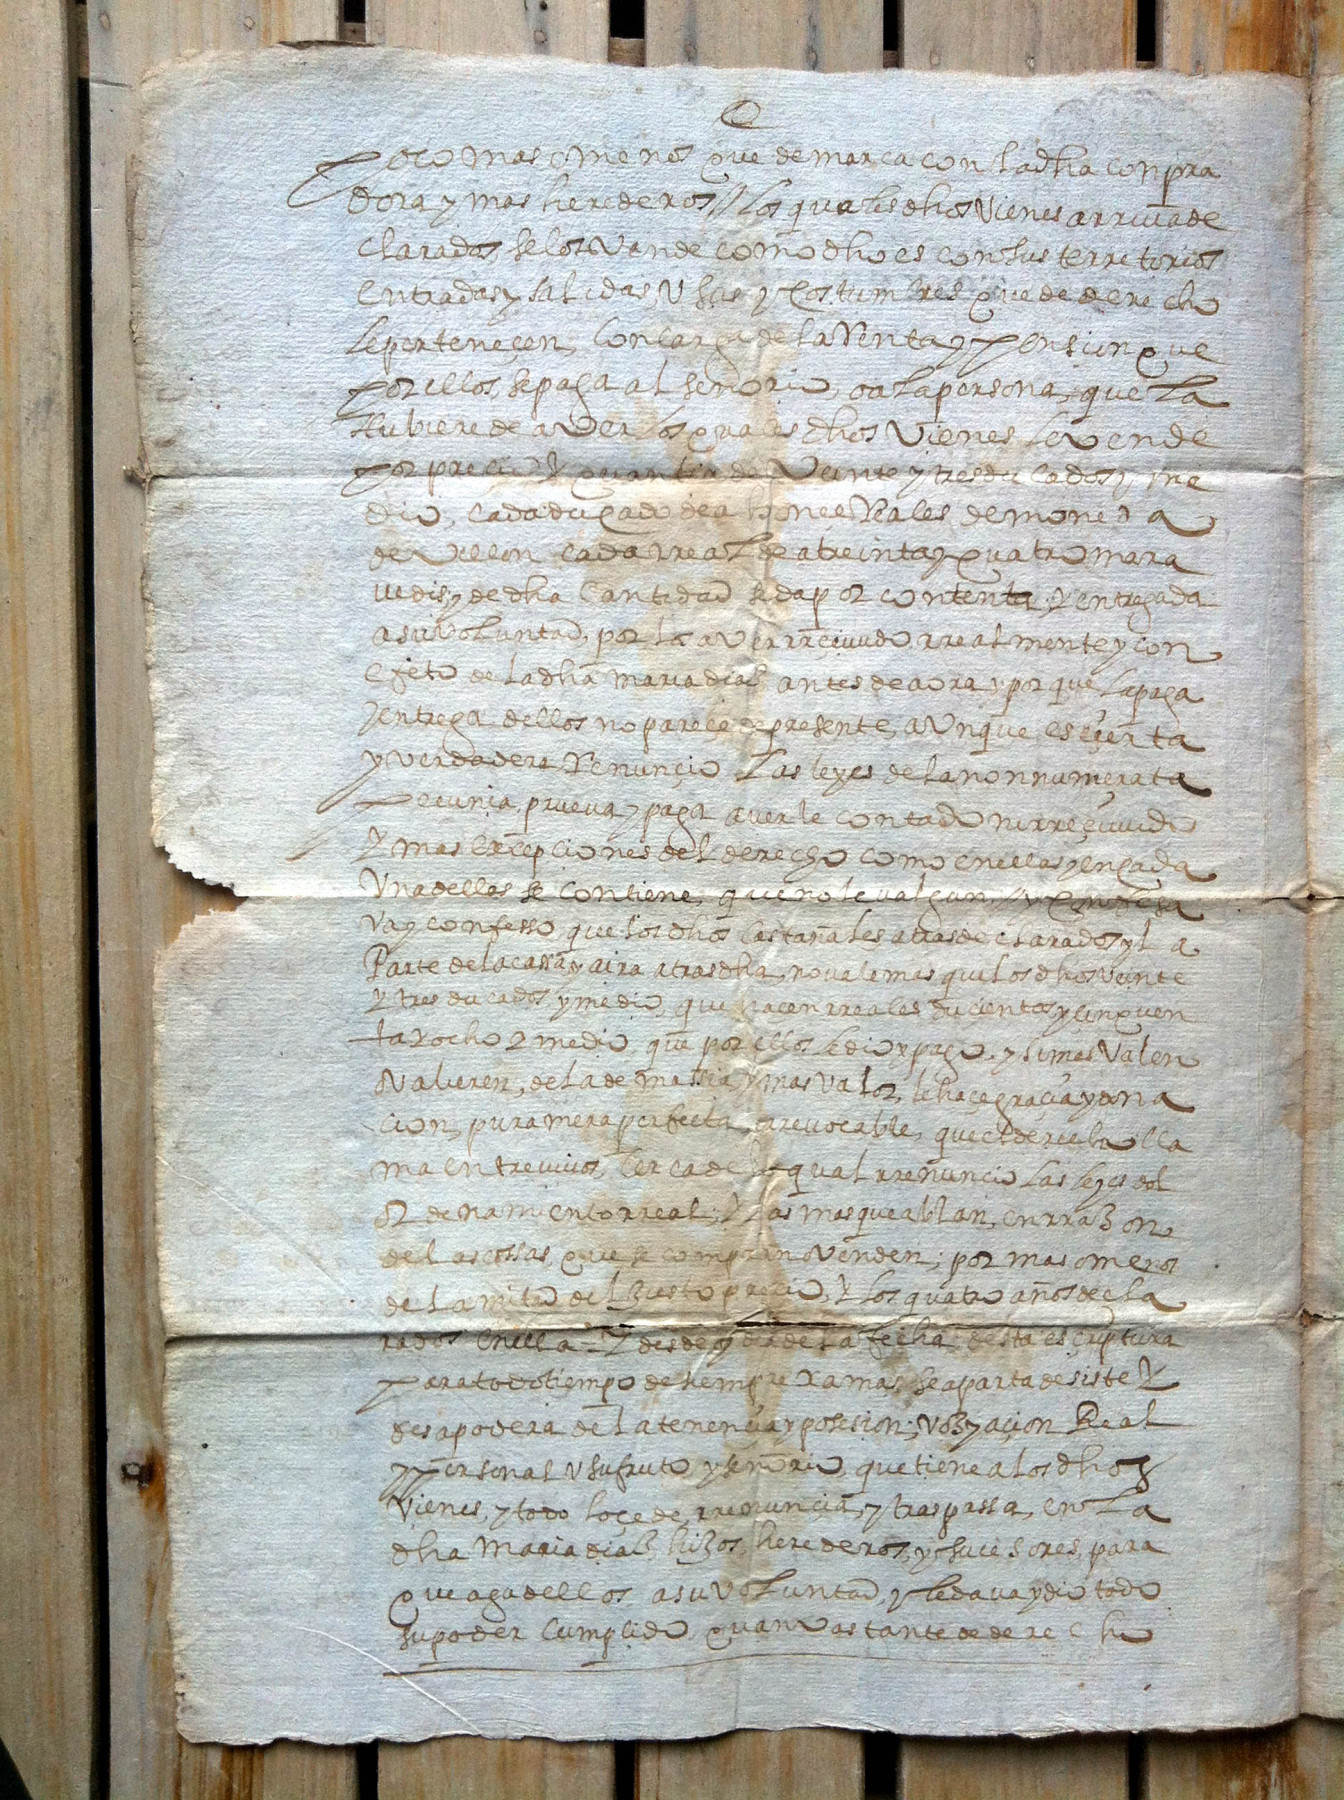 poco mas o menos que demarca con la dha conpra
dora y mas herederos // los quales dhos vienes arriva de
clarados se los vande como dho es con sus terretorios
entradas y salidas usos y costumbres que de derecho
le perteneçen, con carga de la Renta y pension que
por ellos se paga al señorio, o a la persona, que la
hubiere de aver los quales dhos vienes le vende
por preçio y quantia de veinte y tres ducados y me
dio, cada ducado de a honçe Reales de moneda
de vellon cada rreal de a treinta y quatro mara
vedis, y de dha cantidad se da por contenta y entregada
a su voluntad, por lo aver rreçivido rrealmente y con
efeto de la dha maria dias antes de aora y porque la paga
y entrega dellos no pareçe de presente, aunque es çierta
y verdadera Renunçio las leyes de la non numerata
pecunia, prueva y paga averle contado ni rreçivido
y mas exçepciones del derecho como en ellas y en cada
una dellas se contiene, que no le valgan, // y confesa
va y confesso que los dhos castañales atras declarados y la
Parte de la cassa y aira atras dha, no vale mas que los dhos veinte
y tres ducados y medio, que hacen rreales duçientos y cinquen
ta y ocho y medio que por ellos le dio y pago, y si mas valen
o valieren, de la demassia y mas valor, le haçe graçia y dona
cion, pura mera perfecta, irevocable, que el derecho lla
ma entre vivos, cerca de lo qual rrenuncio las leyes del
ordenamiento rreal, y las mas que ablan, en rraзon
de las cossas que se compran o venden, por mas o menos
de la mitad del justo preçio, y los quatro años decla
rados en ella = y desde oy dia de la fecha desta escriptura
para todo tiempo de siempre xamas, se aparta desiste y
desapodera de la tenençia y posesion, voz y açion Real
y personal usufruto y señorio, que tiene a los dhos
vienes, y todo lo çede, rrenunçia, y traspassa, en la
dha Maria diaz, hijos, herederos, y suçesores, para
que aga dellos a su voluntad, y le dava y dio todo
su poder cumplido, quan vastante de derecho